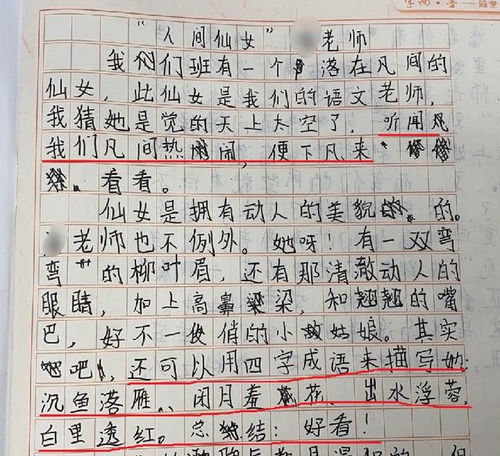 “人间仙女” 老师
我们班有一个 落在凡间的
仙女，此仙女是我们的语文老师，
我猜她是觉的天上太空了，听闻
我们凡间热闹，便下凡来
看看。
仙女是拥有动人的美貌的。
老师也不例外。她呀！有一双弯
弯的柳叶眉，还有那清澈动人的
眼睛，加上高鼻梁，和翘翘的嘴
巴，好不一俊俏的小姑娘。其实
吧，还可以用四字成语来描写她:
沉鱼落雁、闭月羞花、出水浮蓉，
白里透红。总结：好看！